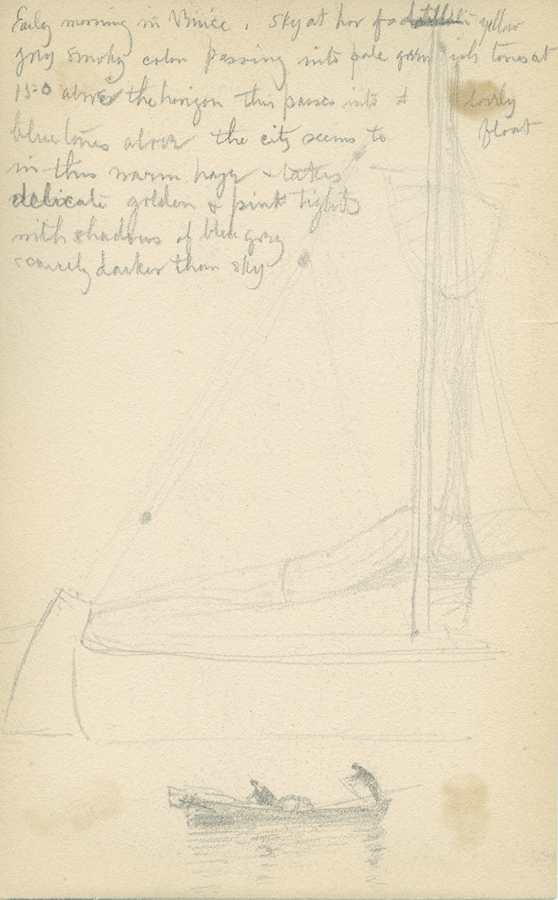 Early morning in Venice. Sky at hor yellow
grey smoky color passing into pale green ish tones at
15° above the horizon this passes into a lovely
blue tones above the city seems to float
in this warm haze & takes
delicate golden & pink lights
with shadows of blue grey
scarcely darker than sky